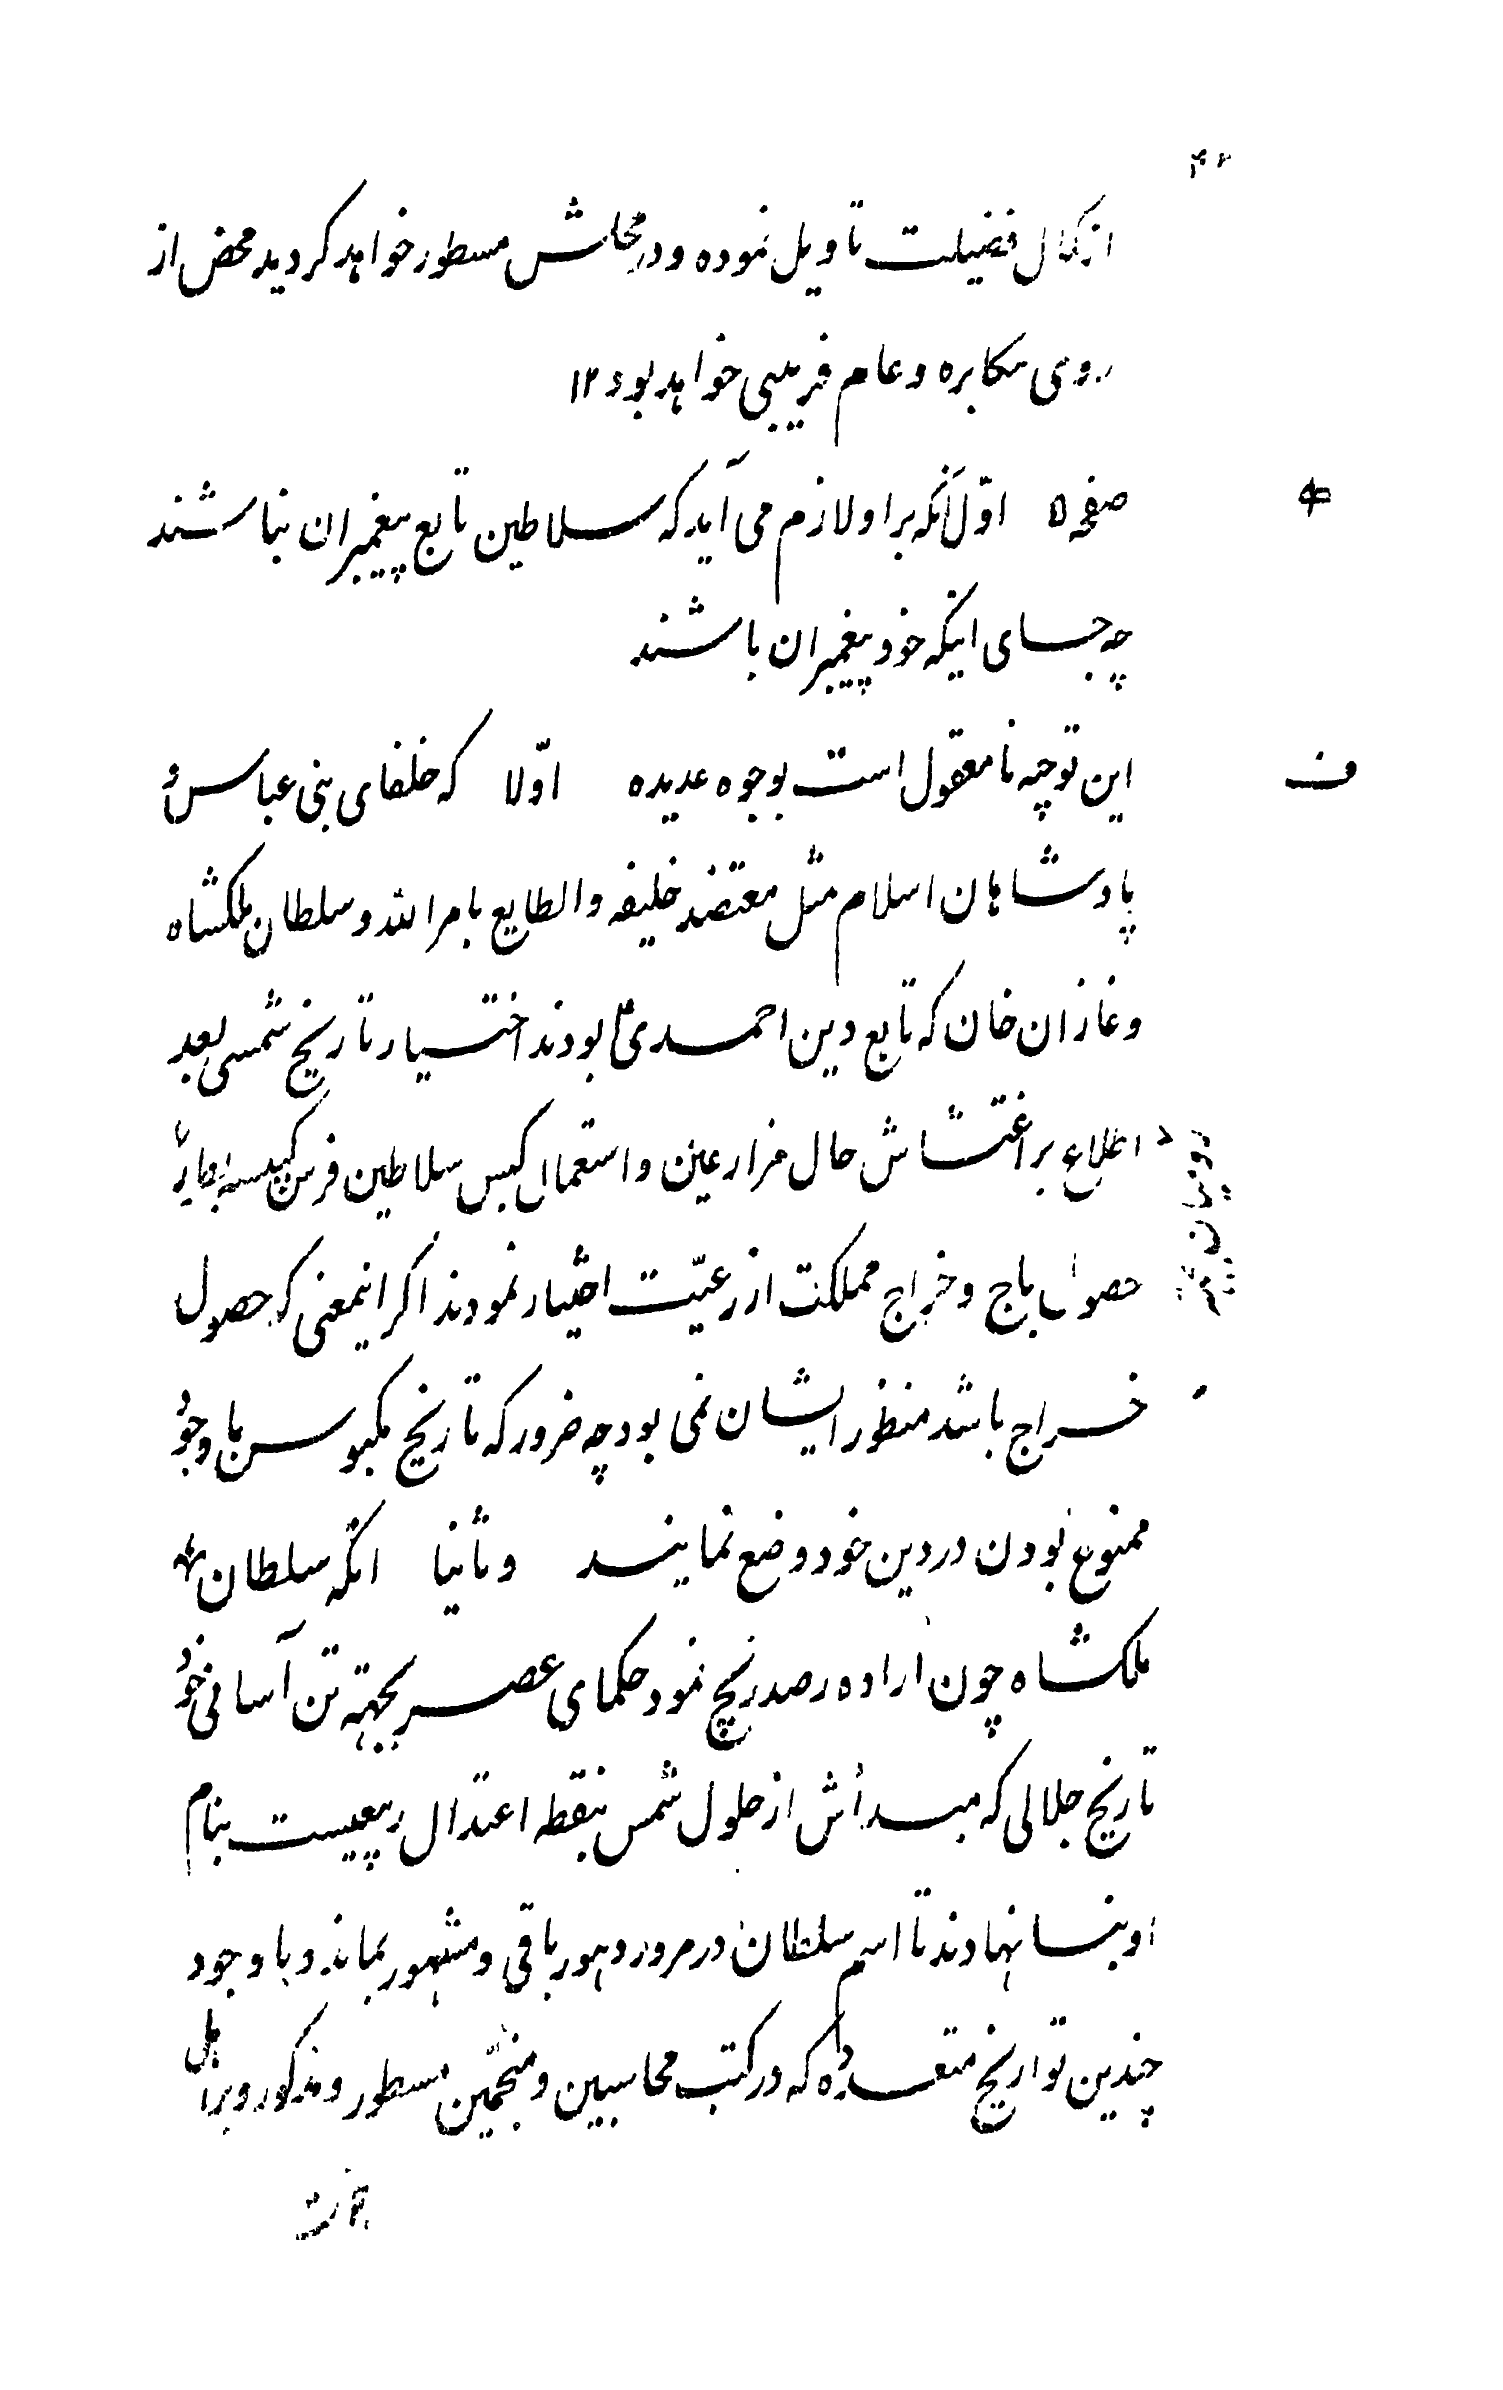 ۴۲
از کمال فضیلت تاویل نموده و در محلش مسطور خواهد کردید محض از
روی مکابره و عام فریبی خواهد بود ۱۲
صفحه ۵ اوّل آنکه بر او لازم می آید که سلاطین تابع پیغمبران نباشند
چه جای اینکه خود پیغمبران باشند
ف این توجه نامعقول است بوجوه عدیده اوّلا که خلفای بنی عباس و
پادشاهان اسلام مثل معتضد خلیفه و الطایع بامر الله و سلطان ملکشاه
و غازان خان که تابع دین احمدی بودند اختیار تاریخ شمسی بعد
اطلاع بر اغتشاش حال مزارعین و استعمال کبس سلاطین فرس کبیسه
رومیان
حصول باج و خراج مملکت از رعیّت اختیار نمودند اکر اینمعنی که حصول
خراج باشد منظور ایشان نمی بود چه ضرور که تاریخ مکبوس با وجود
ممنوع بودن در دین خود وضع نمایند و ثانیا انکه سلطان
ملکشاه چون اراده رصد زیچ نمود حکمای عصر بجهته تن آسانی خود
تاریخ جلالی که مبدأش از حلول شمس بنقطه اعتدال ربیعیست بنام
او بنا نهادند تا اسم سلطان در مرور دهور باقی و مشهور بماند و با وجود
چندین تواریخ متعدده که در کتب محاسبین و منجّمین مسطور و مذکور و بر اهل